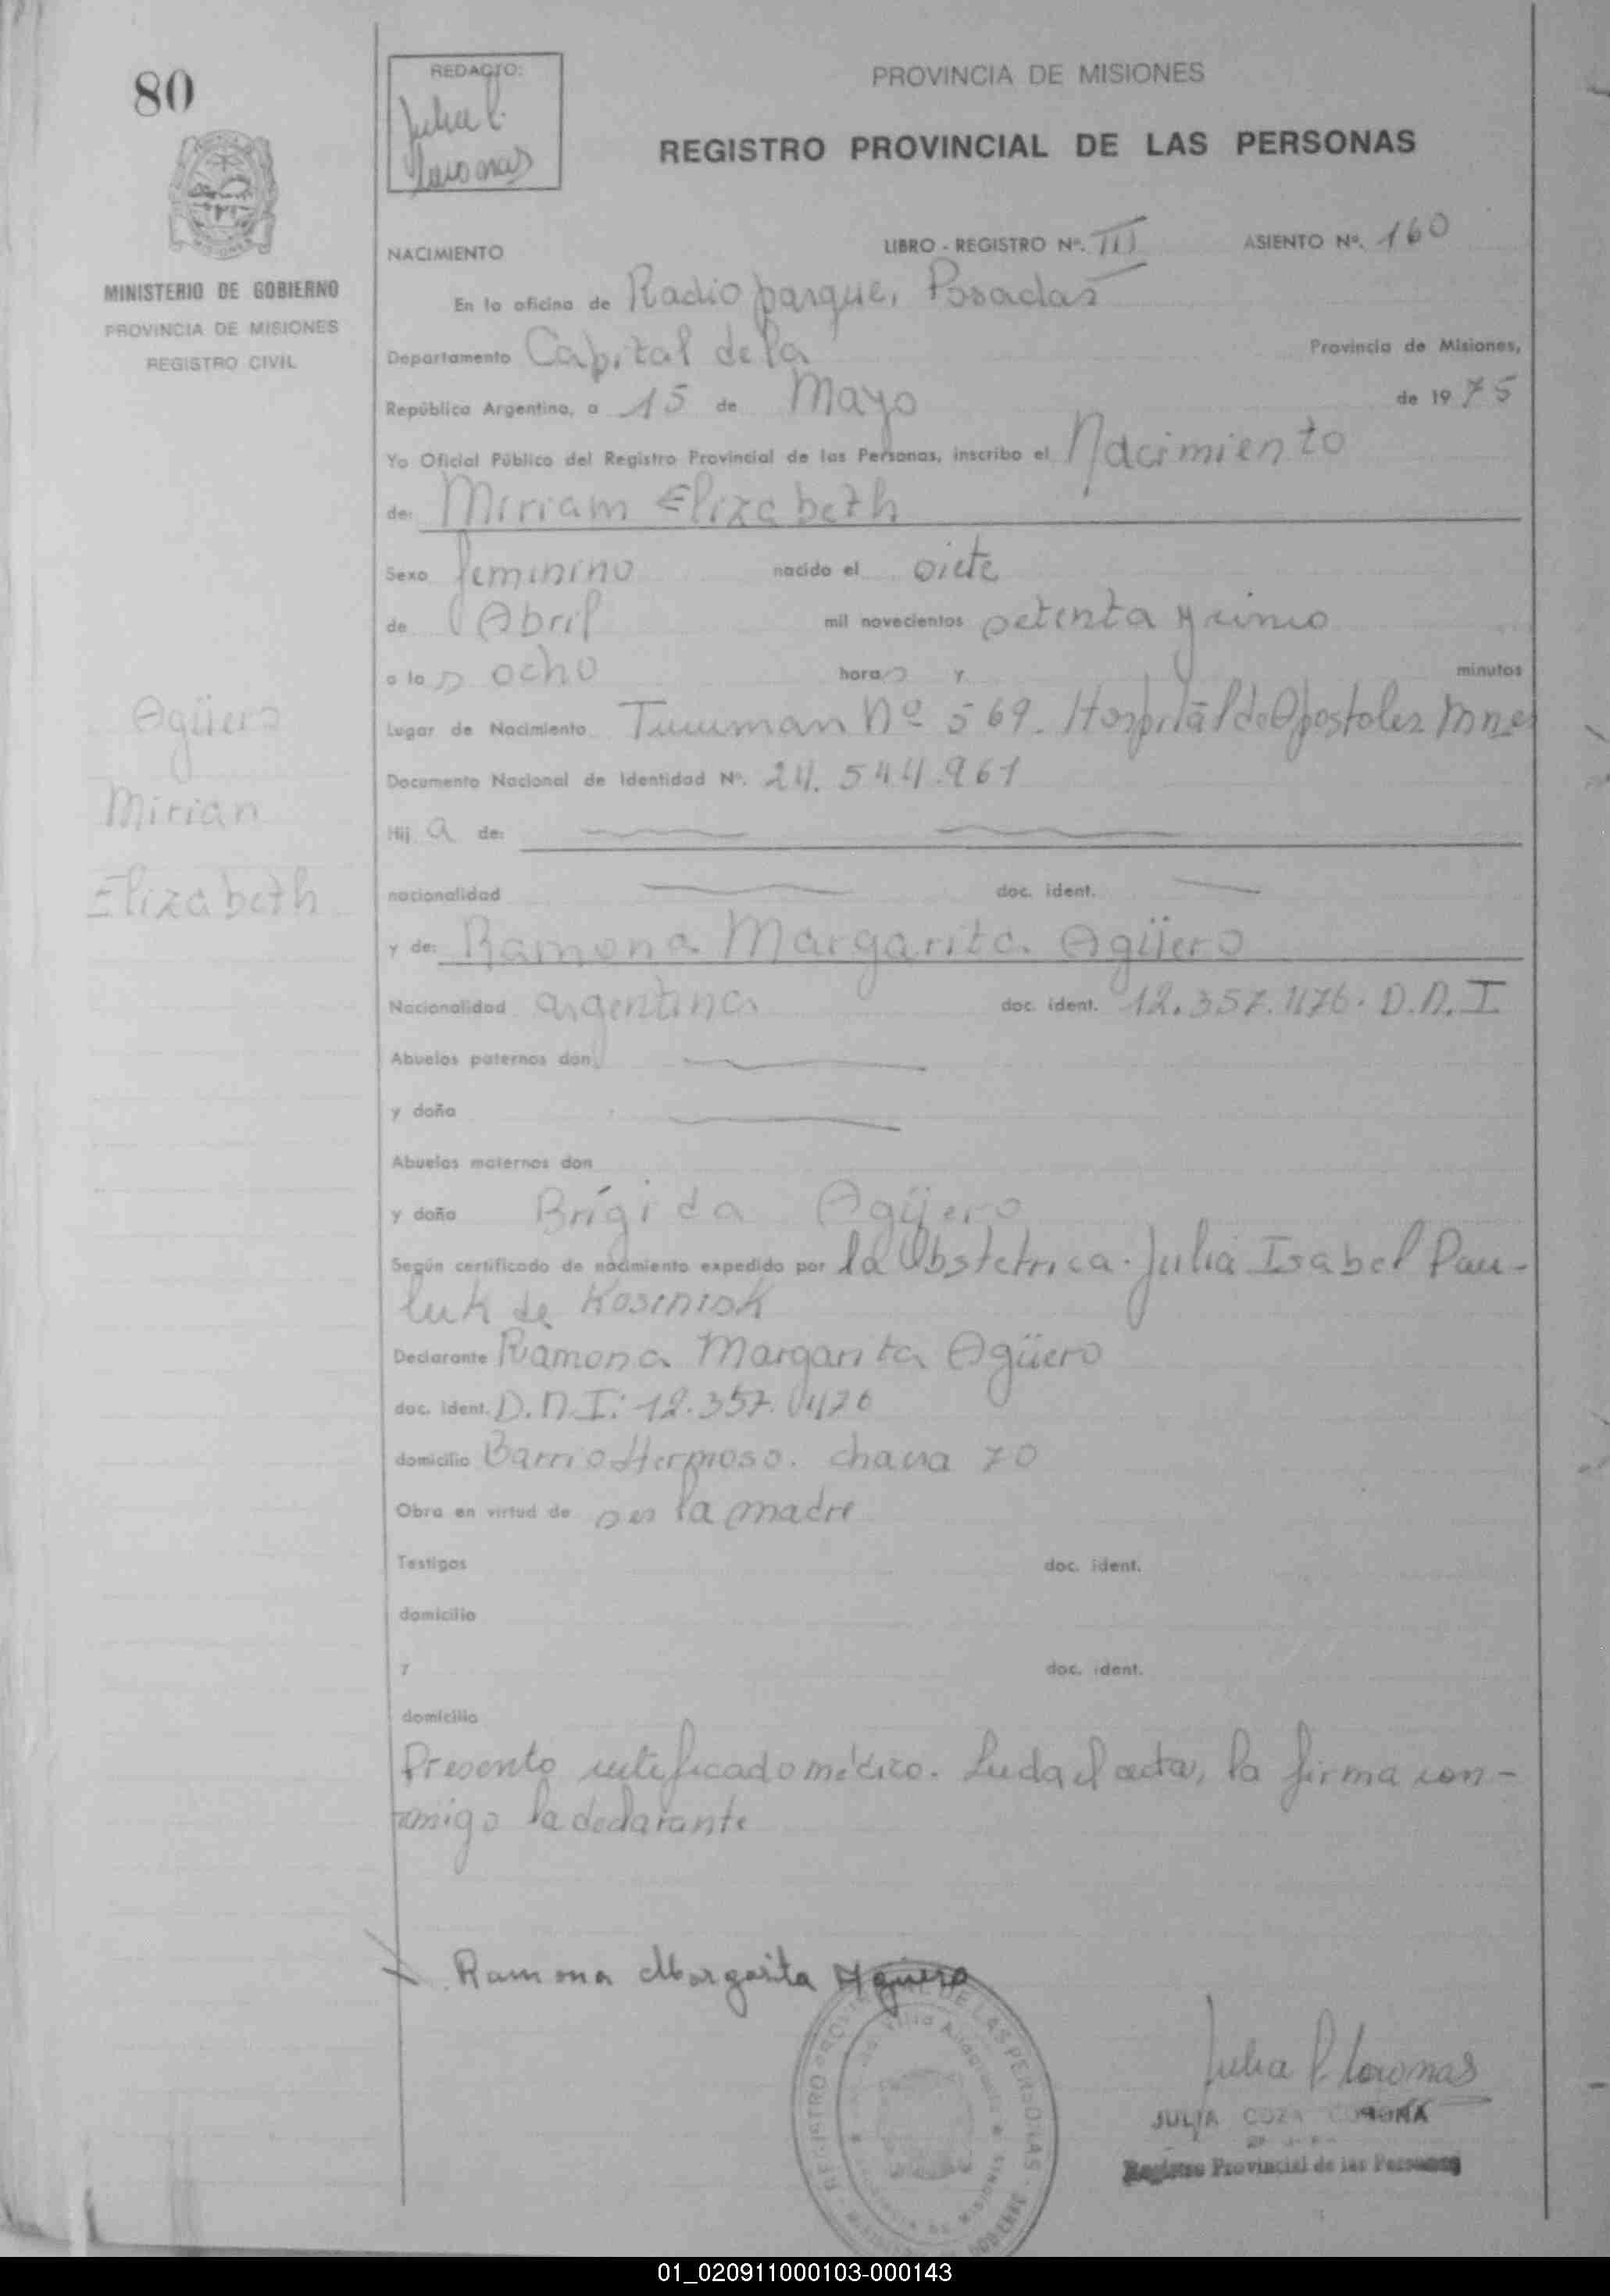 80
REDACTO:
Julia C.
PROVINCIA DE MISIONES
REGISTRO PROVINCIAL DE LAS PERSONAS
MINISTERIO DE GOBIERNO
PROVINCIA DE MISIONES
REGISTRO CIVIL
Agüero
Mirian
Elizabeth
NACIMIENTO LIBRO - REGISTRO Nº. III ASIENTO Nº. 160
En la oficina de Radio parque, Posadas
Departamento Capital de la Provincia de Misiones,
República Argentina, a 15 de Mayo de 1975
Yo Oficial Público del Registro Provincial de las Personas, inscribo el Nacimiento
de: Miriam Elizabeth
Sexo femenino nacido el siete
de Abril mil novecientos setenta y cinco
a las ocho horas y minutos
Lugar de Nacimiento Tucuman Nº 569. Hospital de Apostoles Mnes
Documento Nacional de Identidad Nº. 24.544.961
Hija de:
nacionalidad doc. ident.
y de: Ramona Margarita Agüero
Nacionalidad argentina doc. ident. 12.357.476. D.N.I
Abuelos paternos don
y doña
Abuelos maternos don
y doña Brígida Agüero
Según certificado de nacimiento expedido por la Obstetrica. Julia Isabel Pau-
luk de Kosinisk
Declarante Ramona Margarita Agüero
doc. ident. D.N.I: 12.357.476
domicilio Barrio Hermoso. chacra 70
Obra en virtud de ser la madre
Testigos doc. ident.
domicilio
Y doc. ident.
domicilio
Presento certificado médico. Leida el acta, la firma con-
migo la declarante
Ramona Margarita Aguero
REGISTRO DE LAS PERSONAS
MISIONES
Julia
JULIA
Registro Provincial de las Personas
01_020911000103-000143